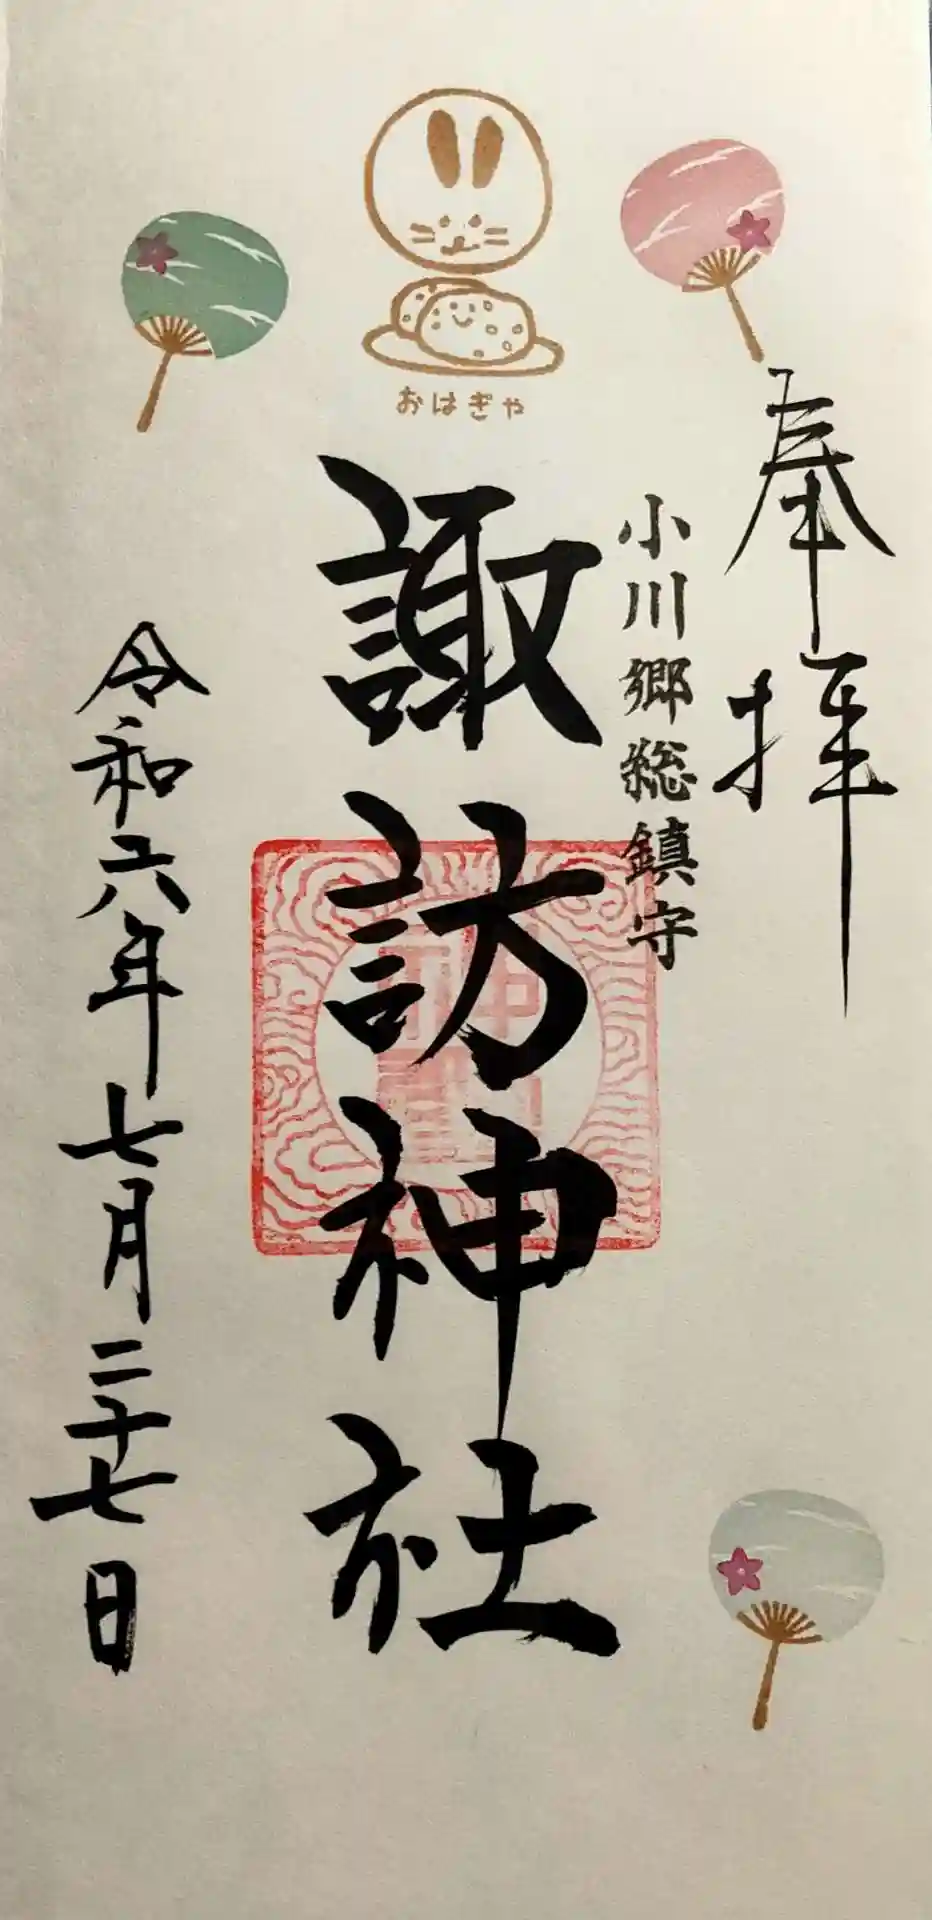 奉拝
小川郷総鎮守
おはぎや
諏訪神社
令和六年七月二十七日